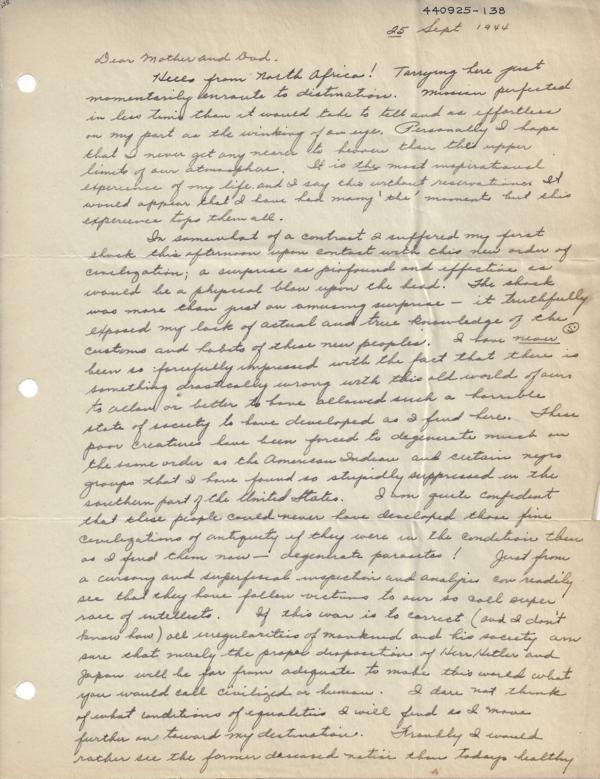 440925-138
25 Sept 1944
Dear Mother and Dad.
Hello from North Africa! Tarrying here just
momentarily enroute to distination. Mission perfected
in less time than it would take to tell and as effortless
on my part as the winking of an eye. Personally I hope
that I never get any nearer to heaven than the upper
limits of our atmosphere. It is the most inspirational
experience of my life and I say this without reservations. It
would appear that I have had many "the" moments but this
experience tops them all.
In somewhat of a contrast I suffered my first
shock this afternoon upon contact with this new order of
civilization; a surprise as profound and effective as
would be a physical blow upon the head. The shock
was more than just an amusing surprise - it truthfully
exposed my lack of actual and true knowledge of the
customs and habits of these new peoples. I have never
been so forcefully impressed with the fact that there is
something drastically wrong with this old world of ours
to allow or better to have allowed such a horrible
state of society to have developed as I find here. These
poor creatures have been forced to degenerate much on
the same order as the American Indian and certain negro
groups that I have found so stupidly suppressed in the
southern part of the United States. I am quite confident
that these people could never have developed those fine
civilizations of antiquity if they were in the condition then
as I find them now - degenerate parasites! Just from
a cursory and superficial inspection and analysis can readily
see that they have fallen victims to our so call super
race of intellects. If this war is to correct (and I don't
know how) all irregularities of mankind and his society am
sure that merely the proper disposition of Herr Hitler and
Japan will be far from adequate to make this world what
you would call civilized or human. I dare not think
of what conditions of equalities I will find as I move
further on toward my destination. Frankly I would
rather see the former deceased native than todays healthy